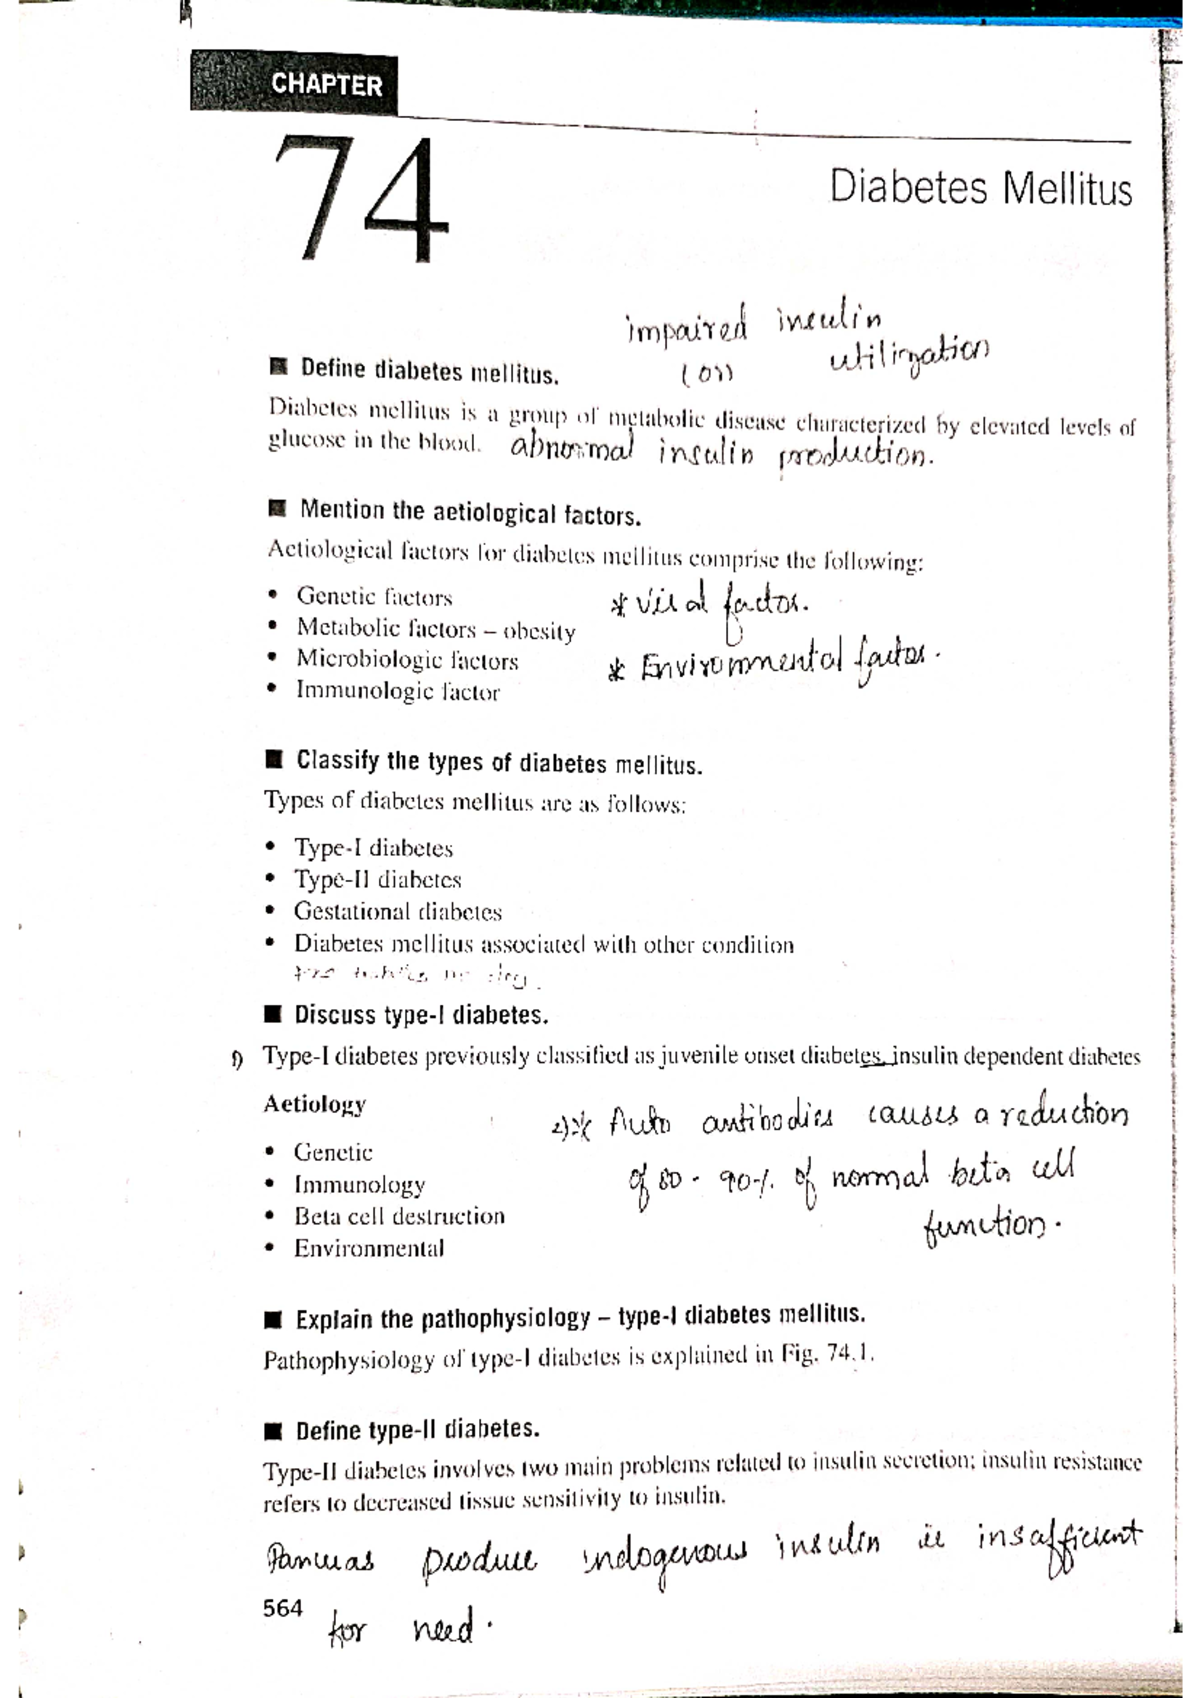 CHAPTER
74
Diabetes Mellitus
impaired insulin
(or) utilization
■ Define diabetes mellitus.
Diabetes mellitus is a group of metabolic disease characterized by elevated levels of
glucose in the blood. abnormal insulin production.
■ Mention the aetiological factors.
Aetiological factors for diabetes mellitus comprise the following:
• Genetic factors
* Viral factor.
• Metabolic factors – obesity
• Microbiologic factors
* Environmental factor.
• Immunologic factor
■ Classify the types of diabetes mellitus.
Types of diabetes mellitus are as follows:
• Type-I diabetes
• Type-II diabetes
• Gestational diabetes
• Diabetes mellitus associated with other condition
■ Discuss type-I diabetes.
1) Type-I diabetes previously classified as juvenile onset diabetes, insulin dependent diabetes
Aetiology
2)* Auto antibodies causes a reduction
• Genetic
• Immunology
of 80 - 90% of normal beta cell
• Beta cell destruction
function.
• Environmental
■ Explain the pathophysiology – type-I diabetes mellitus.
Pathophysiology of type-I diabetes is explained in Fig. 74.1.
■ Define type-II diabetes.
Type-II diabetes involves two main problems related to insulin secretion; insulin resistance
refers to decreased tissue sensitivity to insulin.
Pancreas produce indogenous insulin is insafficient
564
for need.